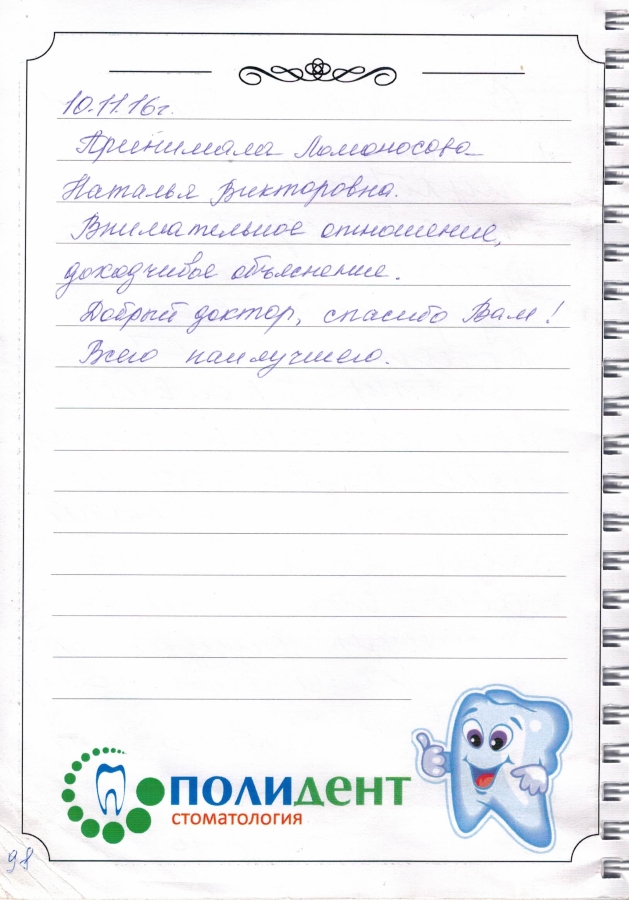 10.11.16г.
Принимала Ломоносова
Наталья Викторовна.
Внимательное отношение,
доходчивое объяснение.
Добрый доктор, спасибо Вам!
Всего наилучшего.
ПОЛИДЕНТ
СТОМАТОЛОГИЯ
98